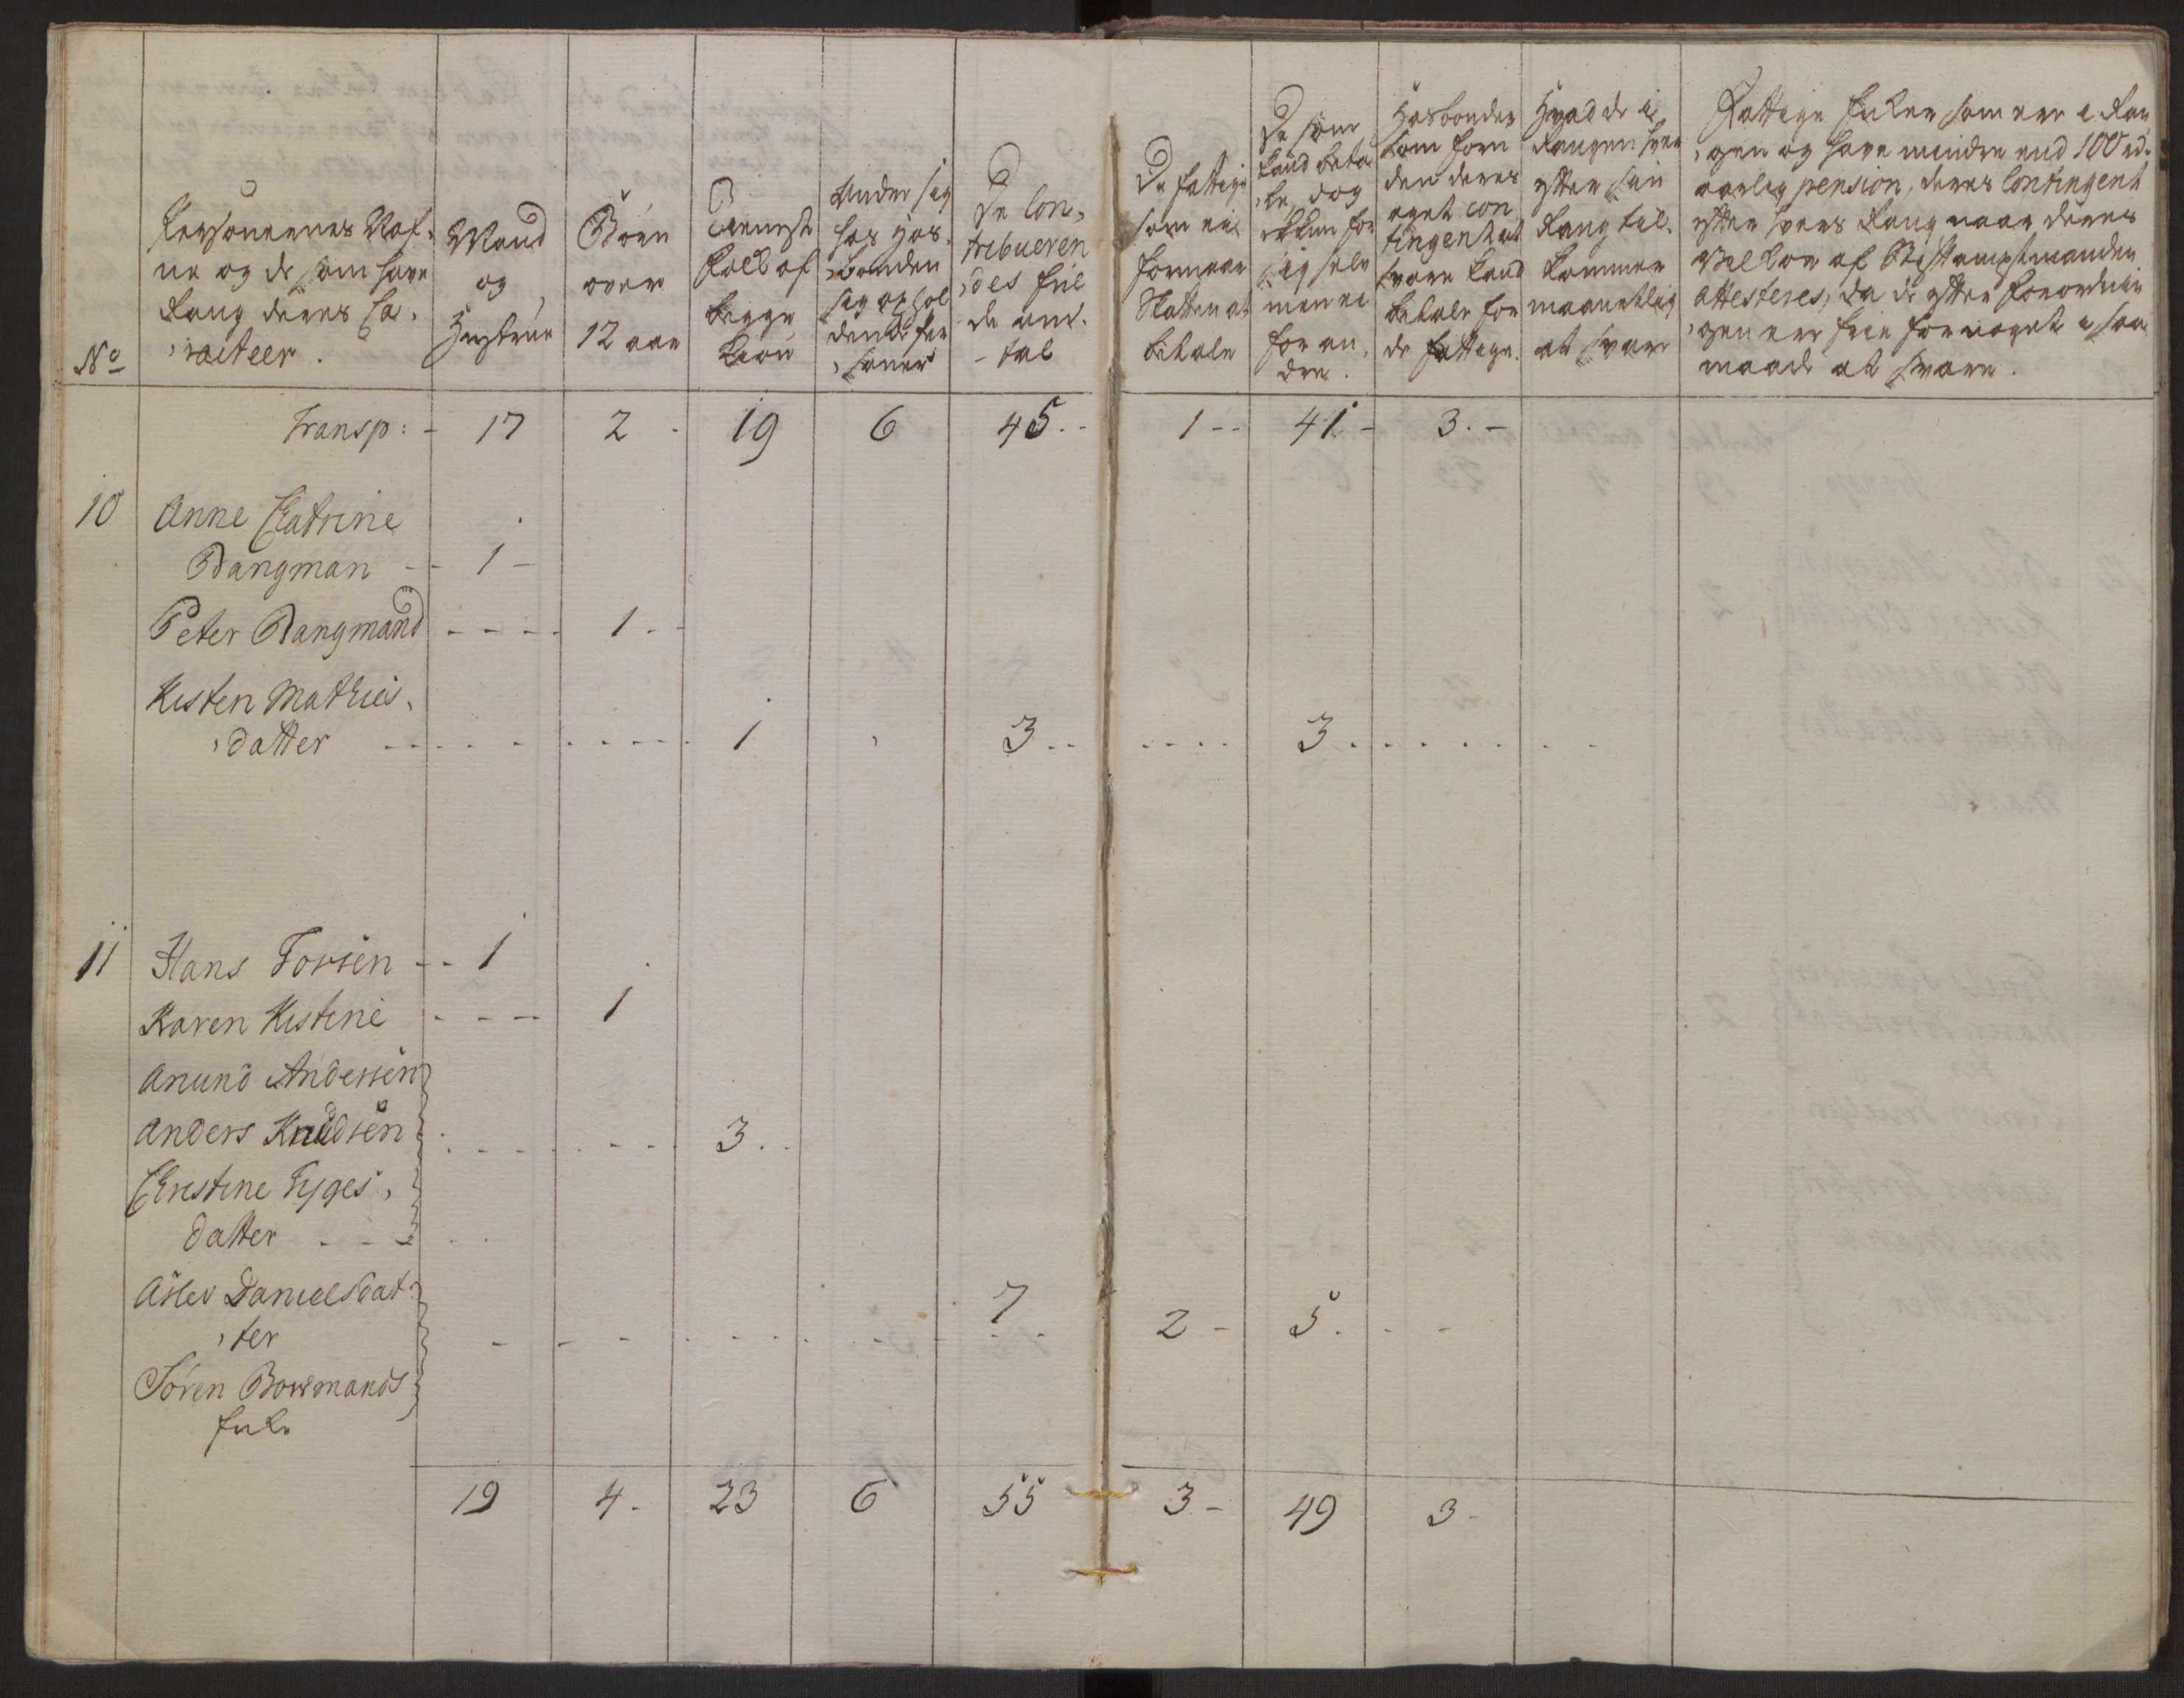 No
Personernes Naf,
ne og de som have
Rang deres Ca,
racteer.
Mand
og
Hustrue
Børn
over
12 aar
Tienneste
Folk af
begge
Kiøn
Andre sig
hos Hos,
bonden
sig ophol
dende Per
soner
De Con,
tribueren
des ful
de an
tal
De fattige
som ei
formaar
Skatten at
betale
De som
kand beta
le, dog
ikkun for
sig selv
men ei
for an,
dre.
Hosbonder
som foru
den deres
eget con
tingent at
svare kand
betale for
de fattige.
Hvad de i
Rangen hver
efter sin
Rang til,
kommer
maanetlig
at svare
Fattige Enker som ere i Ran
gen og have mindre end 100 rd.
aarlig pension, deres Contingent
efter hvers Rang naar deres
Vilkor af Stiftamptmanden
attesteres, da de efter Forordnin
gen ere frie for noget i saa
maade at svare.
Transp: - 17 2 - 19 6 45 -- 1 -- 41 - 3. -
10 Anne Catrine
Bangman -- 1 -
Peter Bangmand ---- 1 --
Kisten Mathies,
datter -- 1 3 -- 3
11 Hans Torsen -- 1
Karen Kistine --- 1
Anund Andersen
Anders Knudsen 3 --
Christine Tyges,
datter ---
Aslev Danielsdat
ter 7 2 - 5. - -
Søren Bowmands
Enke
19 4 - 23 6 55 3 - 49 3 -